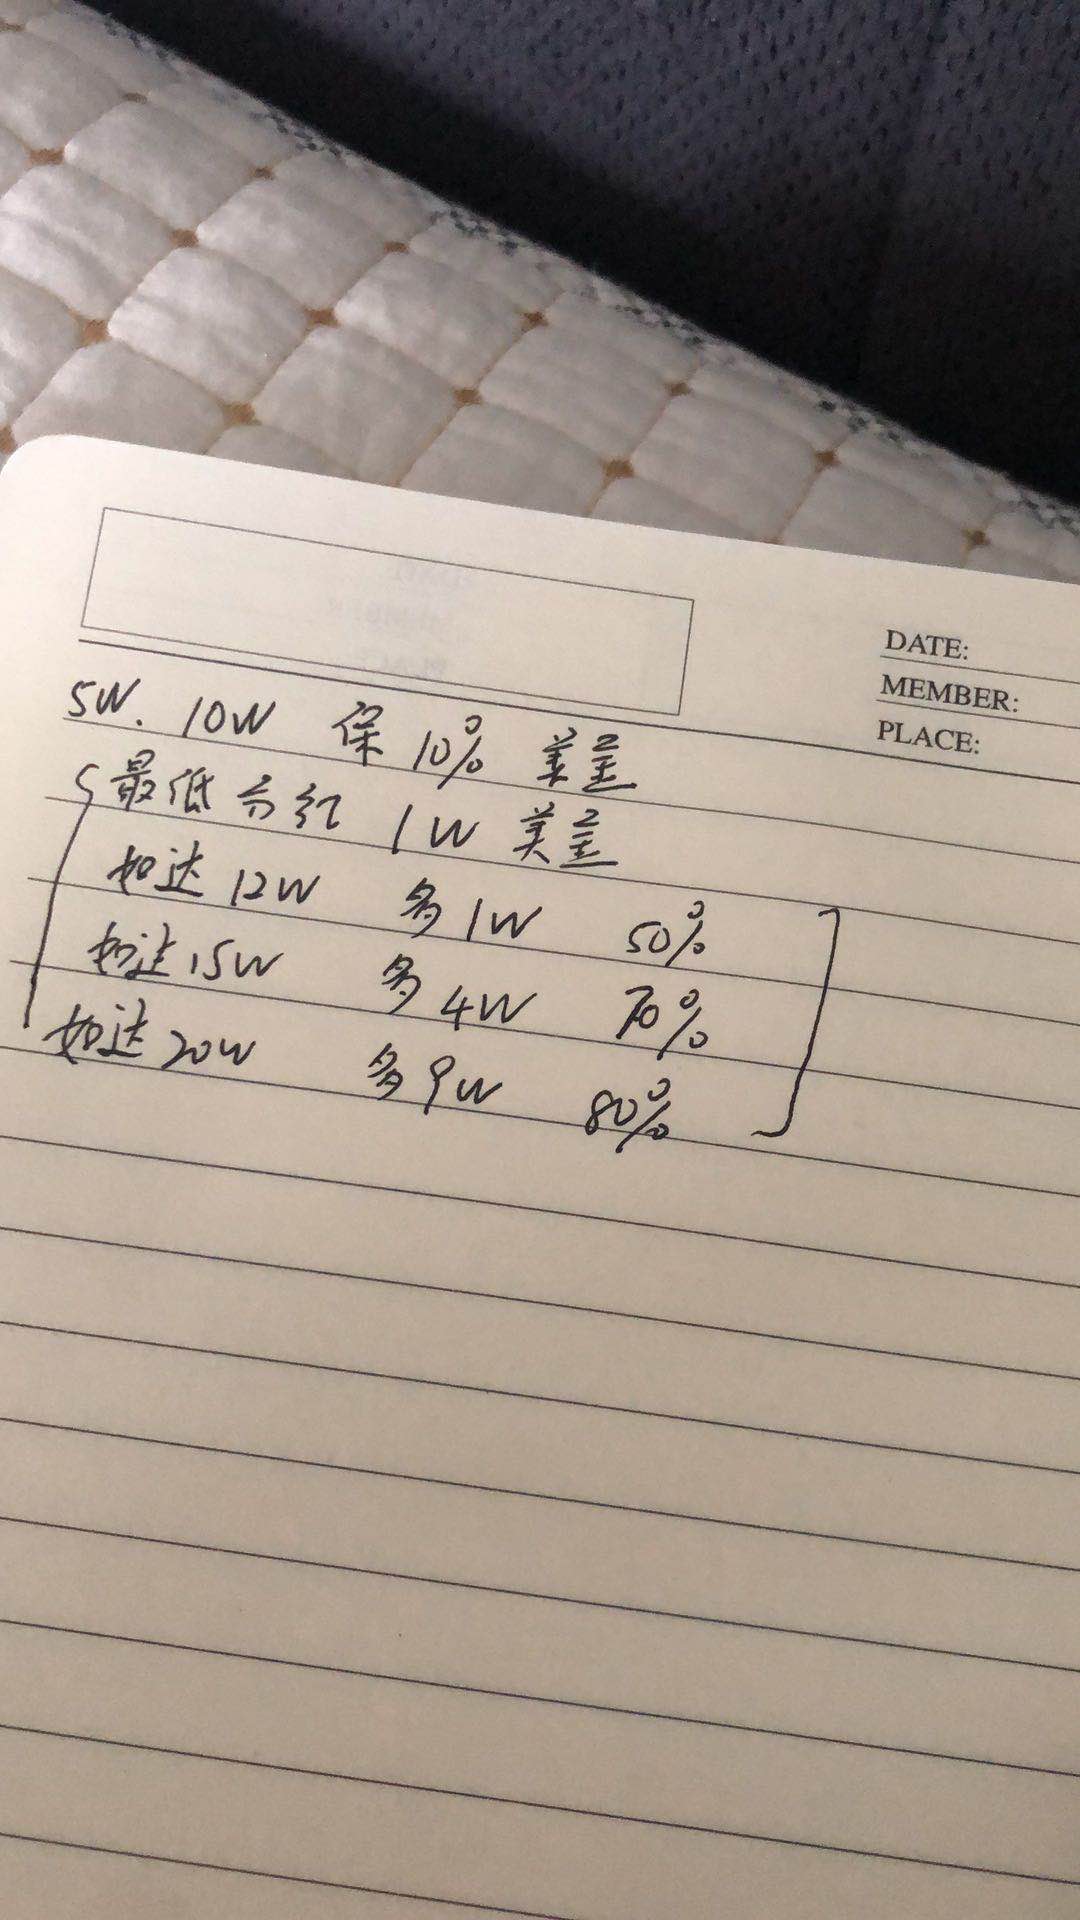 DATE:
MEMBER:
PLACE:
5W. 10W 保 10% 美金
最低分红 1W 美金
如达 12W 多 1W 50%
如达 15W 多 4W 70%
如达 20W 多 9W 80%